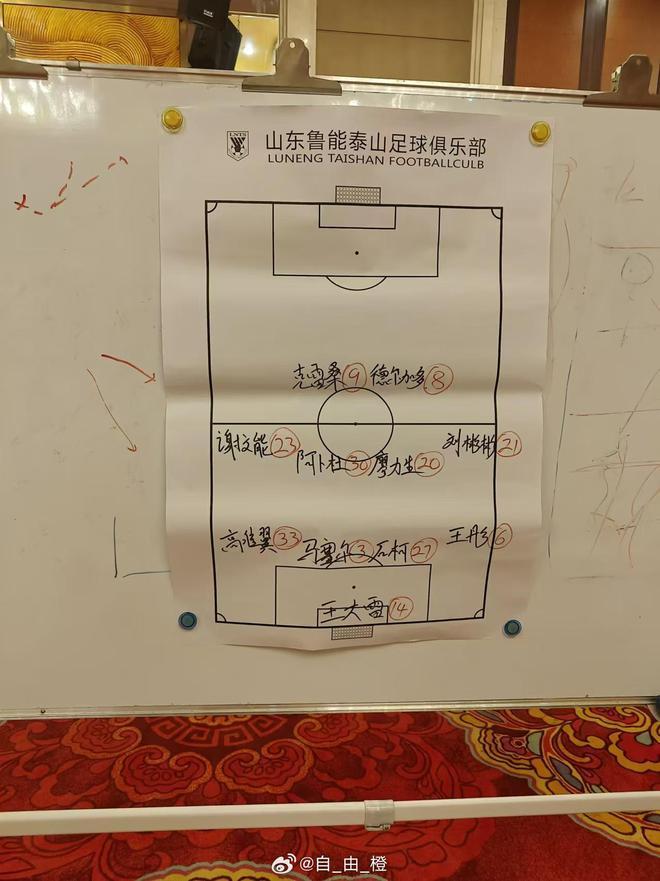 LNTS
山东鲁能泰山足球俱乐部
LUNENG TAISHAN FOOTBALLCULB
克雷桑 9 德尔加多 8
谢文能 23 刘彬彬 21
阿卜杜 30 廖力生 20
高准翼 33 王彤 6
马塞尔 3 石柯 27
王大雷 14
@自_由_橙